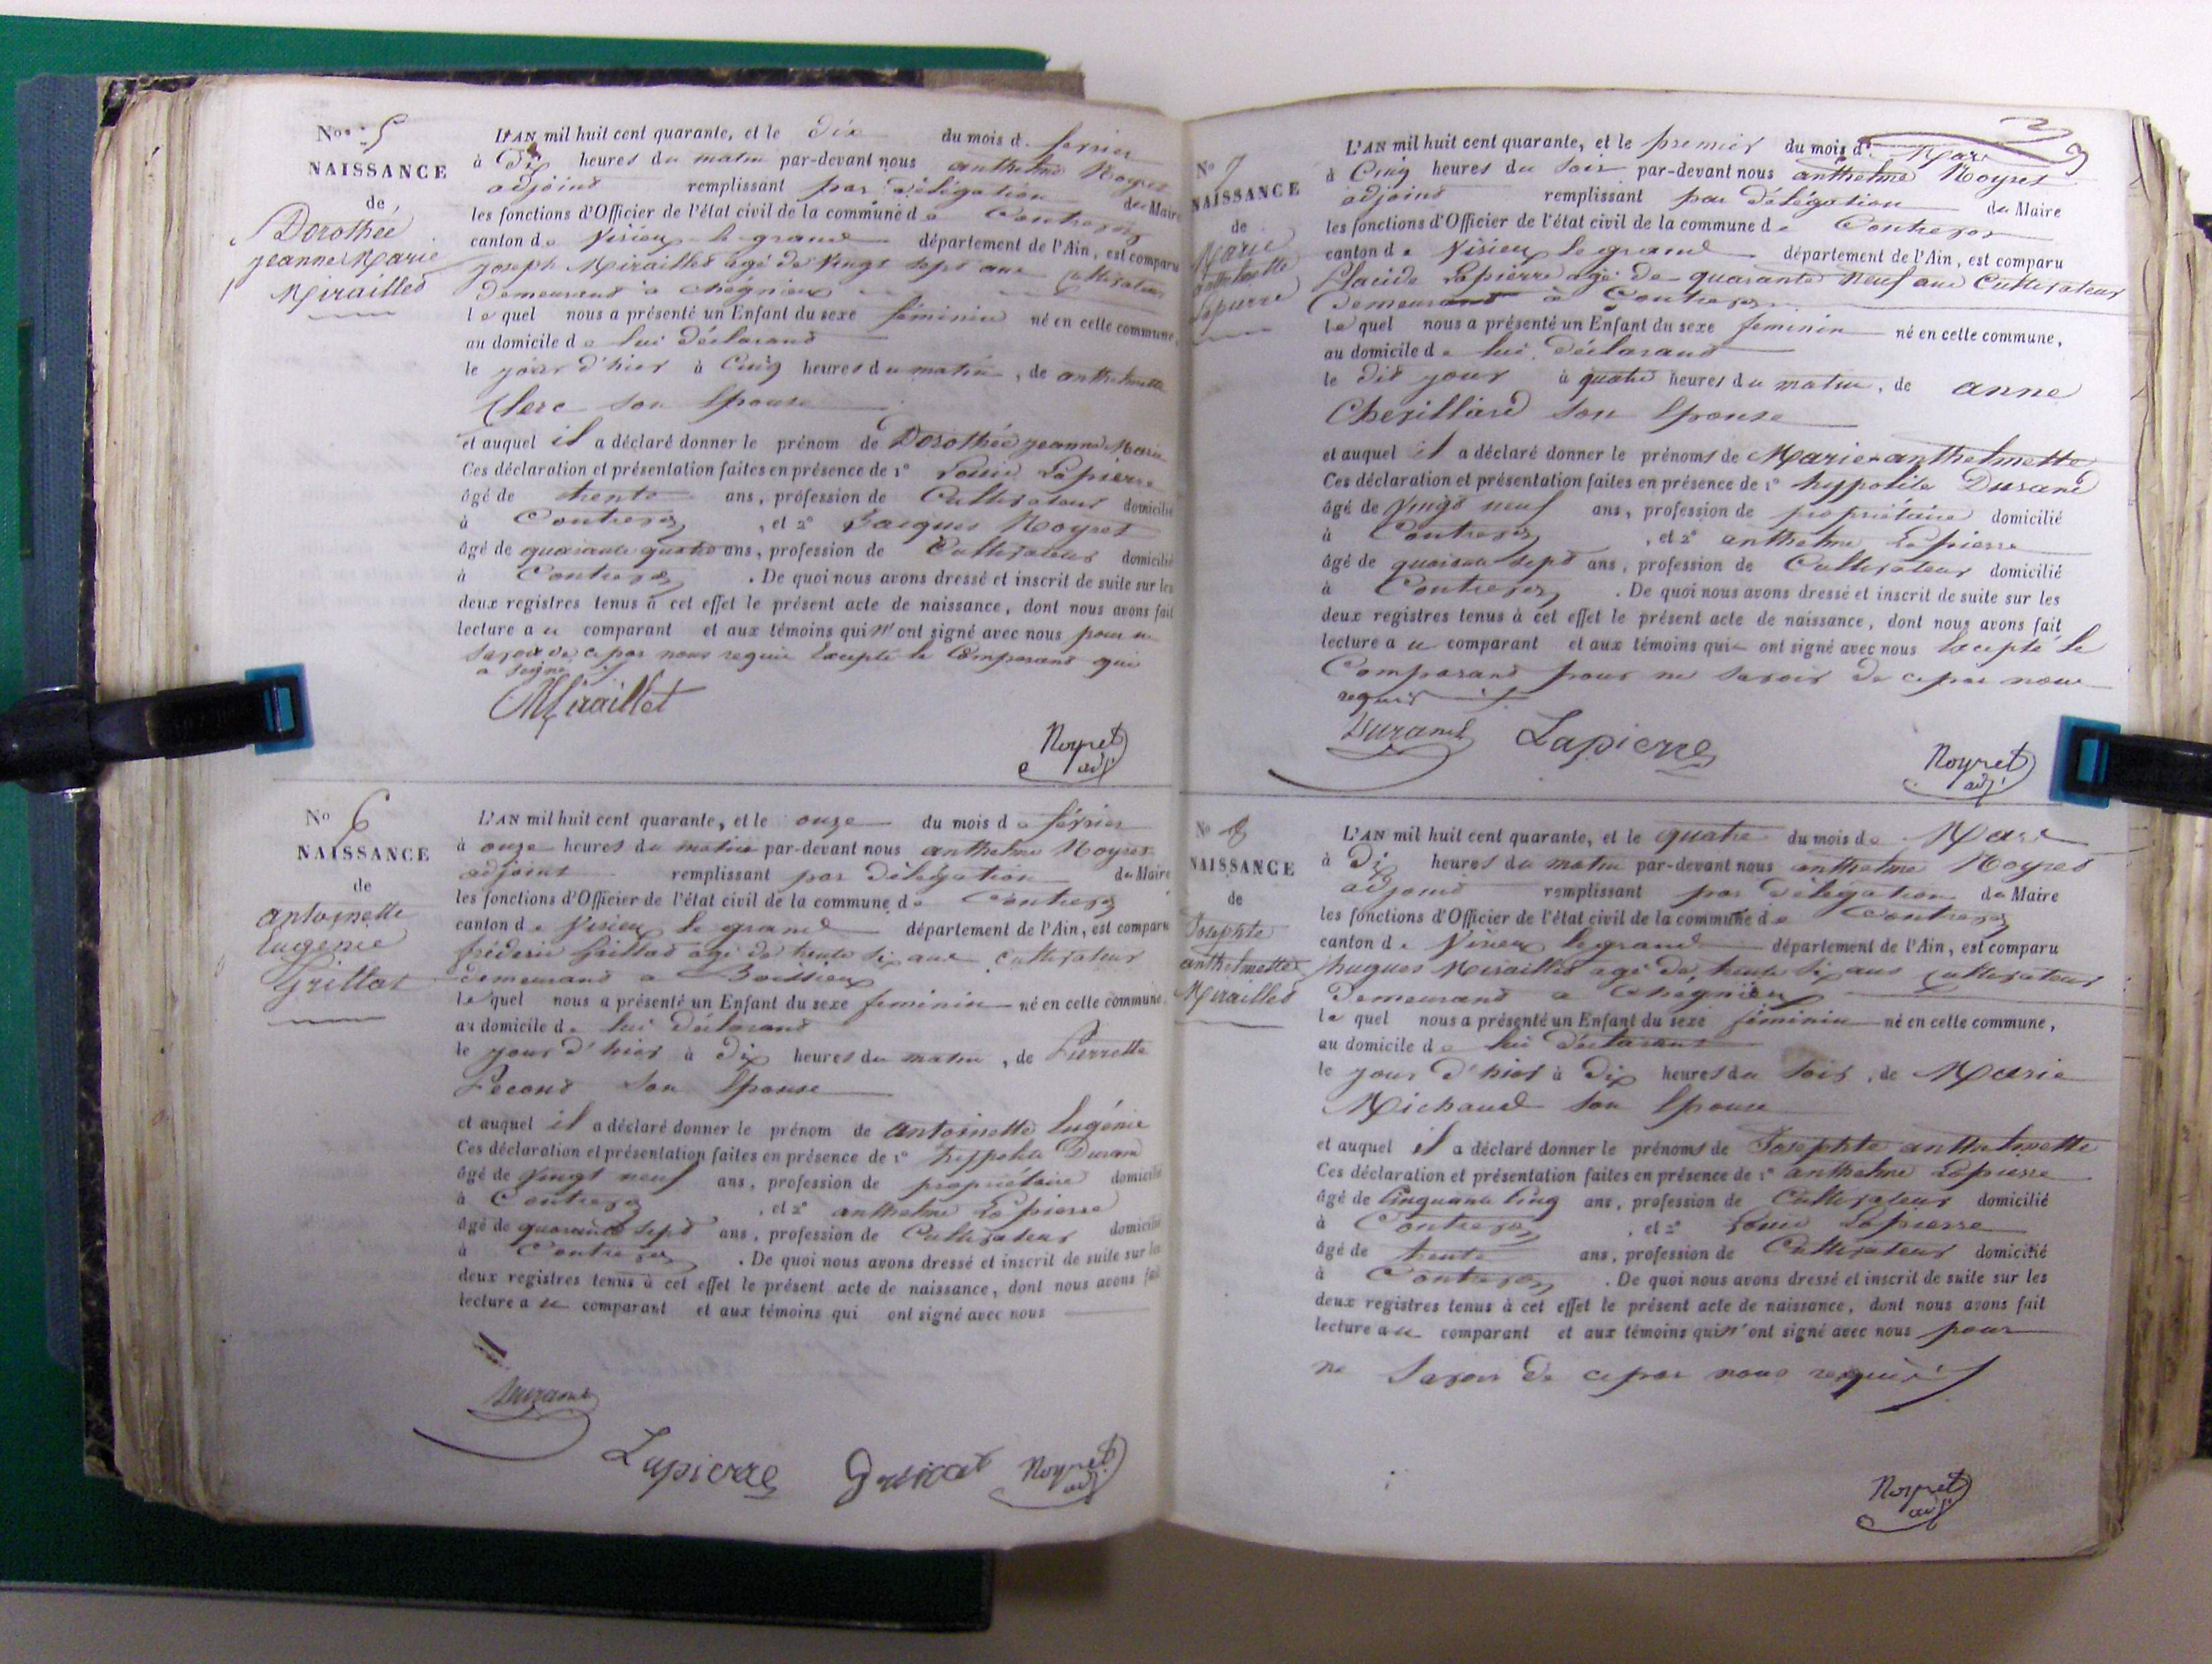 Nos 5
NAISSANCE
de
Dorothée
jeanne Marie
Mirailled
L'AN mil huit cent quarante, et le dix du mois d. fevrier
à Dix heures du matin par-devant nous anthelme Noyret
adjoint remplissant par délégation du Maire
les fonctions d'Officier de l'état civil de la commune de Contrevoz
canton de Virieu le grand département de l'Ain, est comparu
joseph Mirailled agé de vingt sept ans Cultivateur
Demeurant à Chégnieu
lequel nous a présenté un Enfant du sexe féminin né en cette commune,
au domicile de lui déclarant
le jour d'hier à Cinq heures du matin, de anthelmette
Clerc son Epouse
et auquel il a déclaré donner le prénom de Dorothée jeanne Marie
Ces déclaration et présentation faites en présence de 1º Louis Lapierre
âgé de trente ans, profession de Cultivateur domicilié
à Contrevoz, et 2º Jacques Noyret
âgé de quarante quatre ans, profession de Cultivateur domicilié
à Contrevoz. De quoi nous avons dressé et inscrit de suite sur les
deux registres tenus à cet effet le présent acte de naissance, dont nous avons fait
lecture au comparant et aux témoins qui n'ont signé avec nous pour ne
savoir de ce par nous requis Excepté le Comparant qui
a signé
Miraillet
Noyret
adj.
No 6
NAISSANCE
de
antoinette
Eugénie
Grillat
L'AN mil huit cent quarante, et le onze du mois de février
à onze heures du matin par-devant nous anthelme Noyret
adjoint remplissant par délégation du Maire
les fonctions d'Officier de l'état civil de la commune de Contrevoz
canton de Virieu le grand département de l'Ain, est comparu
fréderic Grillat agé de trente six ans Cultivateur
demeurant a Boissieu
lequel nous a présenté un Enfant du sexe feminin né en cette commune
au domicile de lui déclarant
le jour d'hier à Dix heures du matin, de Pierrette
Pecoud son Epouse
et auquel il a déclaré donner le prénom de antoinette Eugénie
Ces déclaration et présentation faites en présence de 1º hyppolite Durand
âgé de Vingt neuf ans, profession de propriétaire domicilié
à Contrevoz, et 2º anthelme Lapierre
âgé de quarante sept ans, profession de Cultivateur domicilié
à Contrevoz. De quoi nous avons dressé et inscrit de suite sur les
deux registres tenus à cet effet le présent acte de naissance, dont nous avons fait
lecture au comparant et aux témoins qui ont signé avec nous
Durand
Lapierre
Grillat
Noyret
adj.
No 7
NAISSANCE
de
Marie
anthelmette
Lapierre
L'AN mil huit cent quarante, et le premier du mois d. Mars
à Cinq heures du soir par-devant nous anthelme Noyret
adjoint remplissant par Délégation du Maire
les fonctions d'Officier de l'état civil de la commune de Contrevoz
canton de Virieu le grand département de l'Ain, est comparu
Placide Lapierre agé de quarante Neuf ans Cultivateur
Demeurant à Contrevoz
lequel nous a présenté un Enfant du sexe feminin né en cette commune,
au domicile de lui déclarant
le dit jour à quatre heures du matin, de anne
Chevillard son Epouse
et auquel il a déclaré donner le prénoms de Marie anthelmette
Ces déclaration et présentation faites en présence de 1º hypolite Durand
âgé de Vingt neuf ans, profession de propriétaire domicilié
à Contrevoz, et 2º anthelme Lapierre
âgé de quarante sept ans, profession de Cultivateur domicilié
à Contrevoz. De quoi nous avons dressé et inscrit de suite sur les
deux registres tenus à cet effet le présent acte de naissance, dont nous avons fait
lecture au comparant et aux témoins qui ont signé avec nous Excepté le
Comparant pour ne savoir de ce par nous
requis
Durand
Lapierre
Noyret
adj.
No 8
NAISSANCE
de
Josephte
anthelmette
Mirailled
L'AN mil huit cent quarante, et le quatre du mois de Mars
à Dix heures du matin par-devant nous anthelme Noyret
adjoint remplissant par délégation du Maire
les fonctions d'Officier de l'état civil de la commune de Contrevoz
canton de Virieu le grand département de l'Ain, est comparu
hugues Mirailled agé de trente six ans Cultivateur
Demeurant a Chégnieu
lequel nous a présenté un Enfant du sexe féminin né en cette commune,
au domicile de lui déclarant
le jour d'hier à Dix heures du soir, de Marie
Michaud son Epouse
et auquel il a déclaré donner le prénoms de Josephte anthelmette
Ces déclaration et présentation faites en présence de 1º anthelme Lapierre
âgé de Cinquante Cinq ans, profession de Cultivateur domicilié
à Contrevoz, et 2º Louis Lapierre
âgé de trente ans, profession de Cultivateur domicilié
à Contrevoz. De quoi nous avons dressé et inscrit de suite sur les
deux registres tenus à cet effet le présent acte de naissance, dont nous avons fait
lecture au comparant et aux témoins qui n'ont signé avec nous pour
ne savoir de ce par nous requis
Noyret
adj.